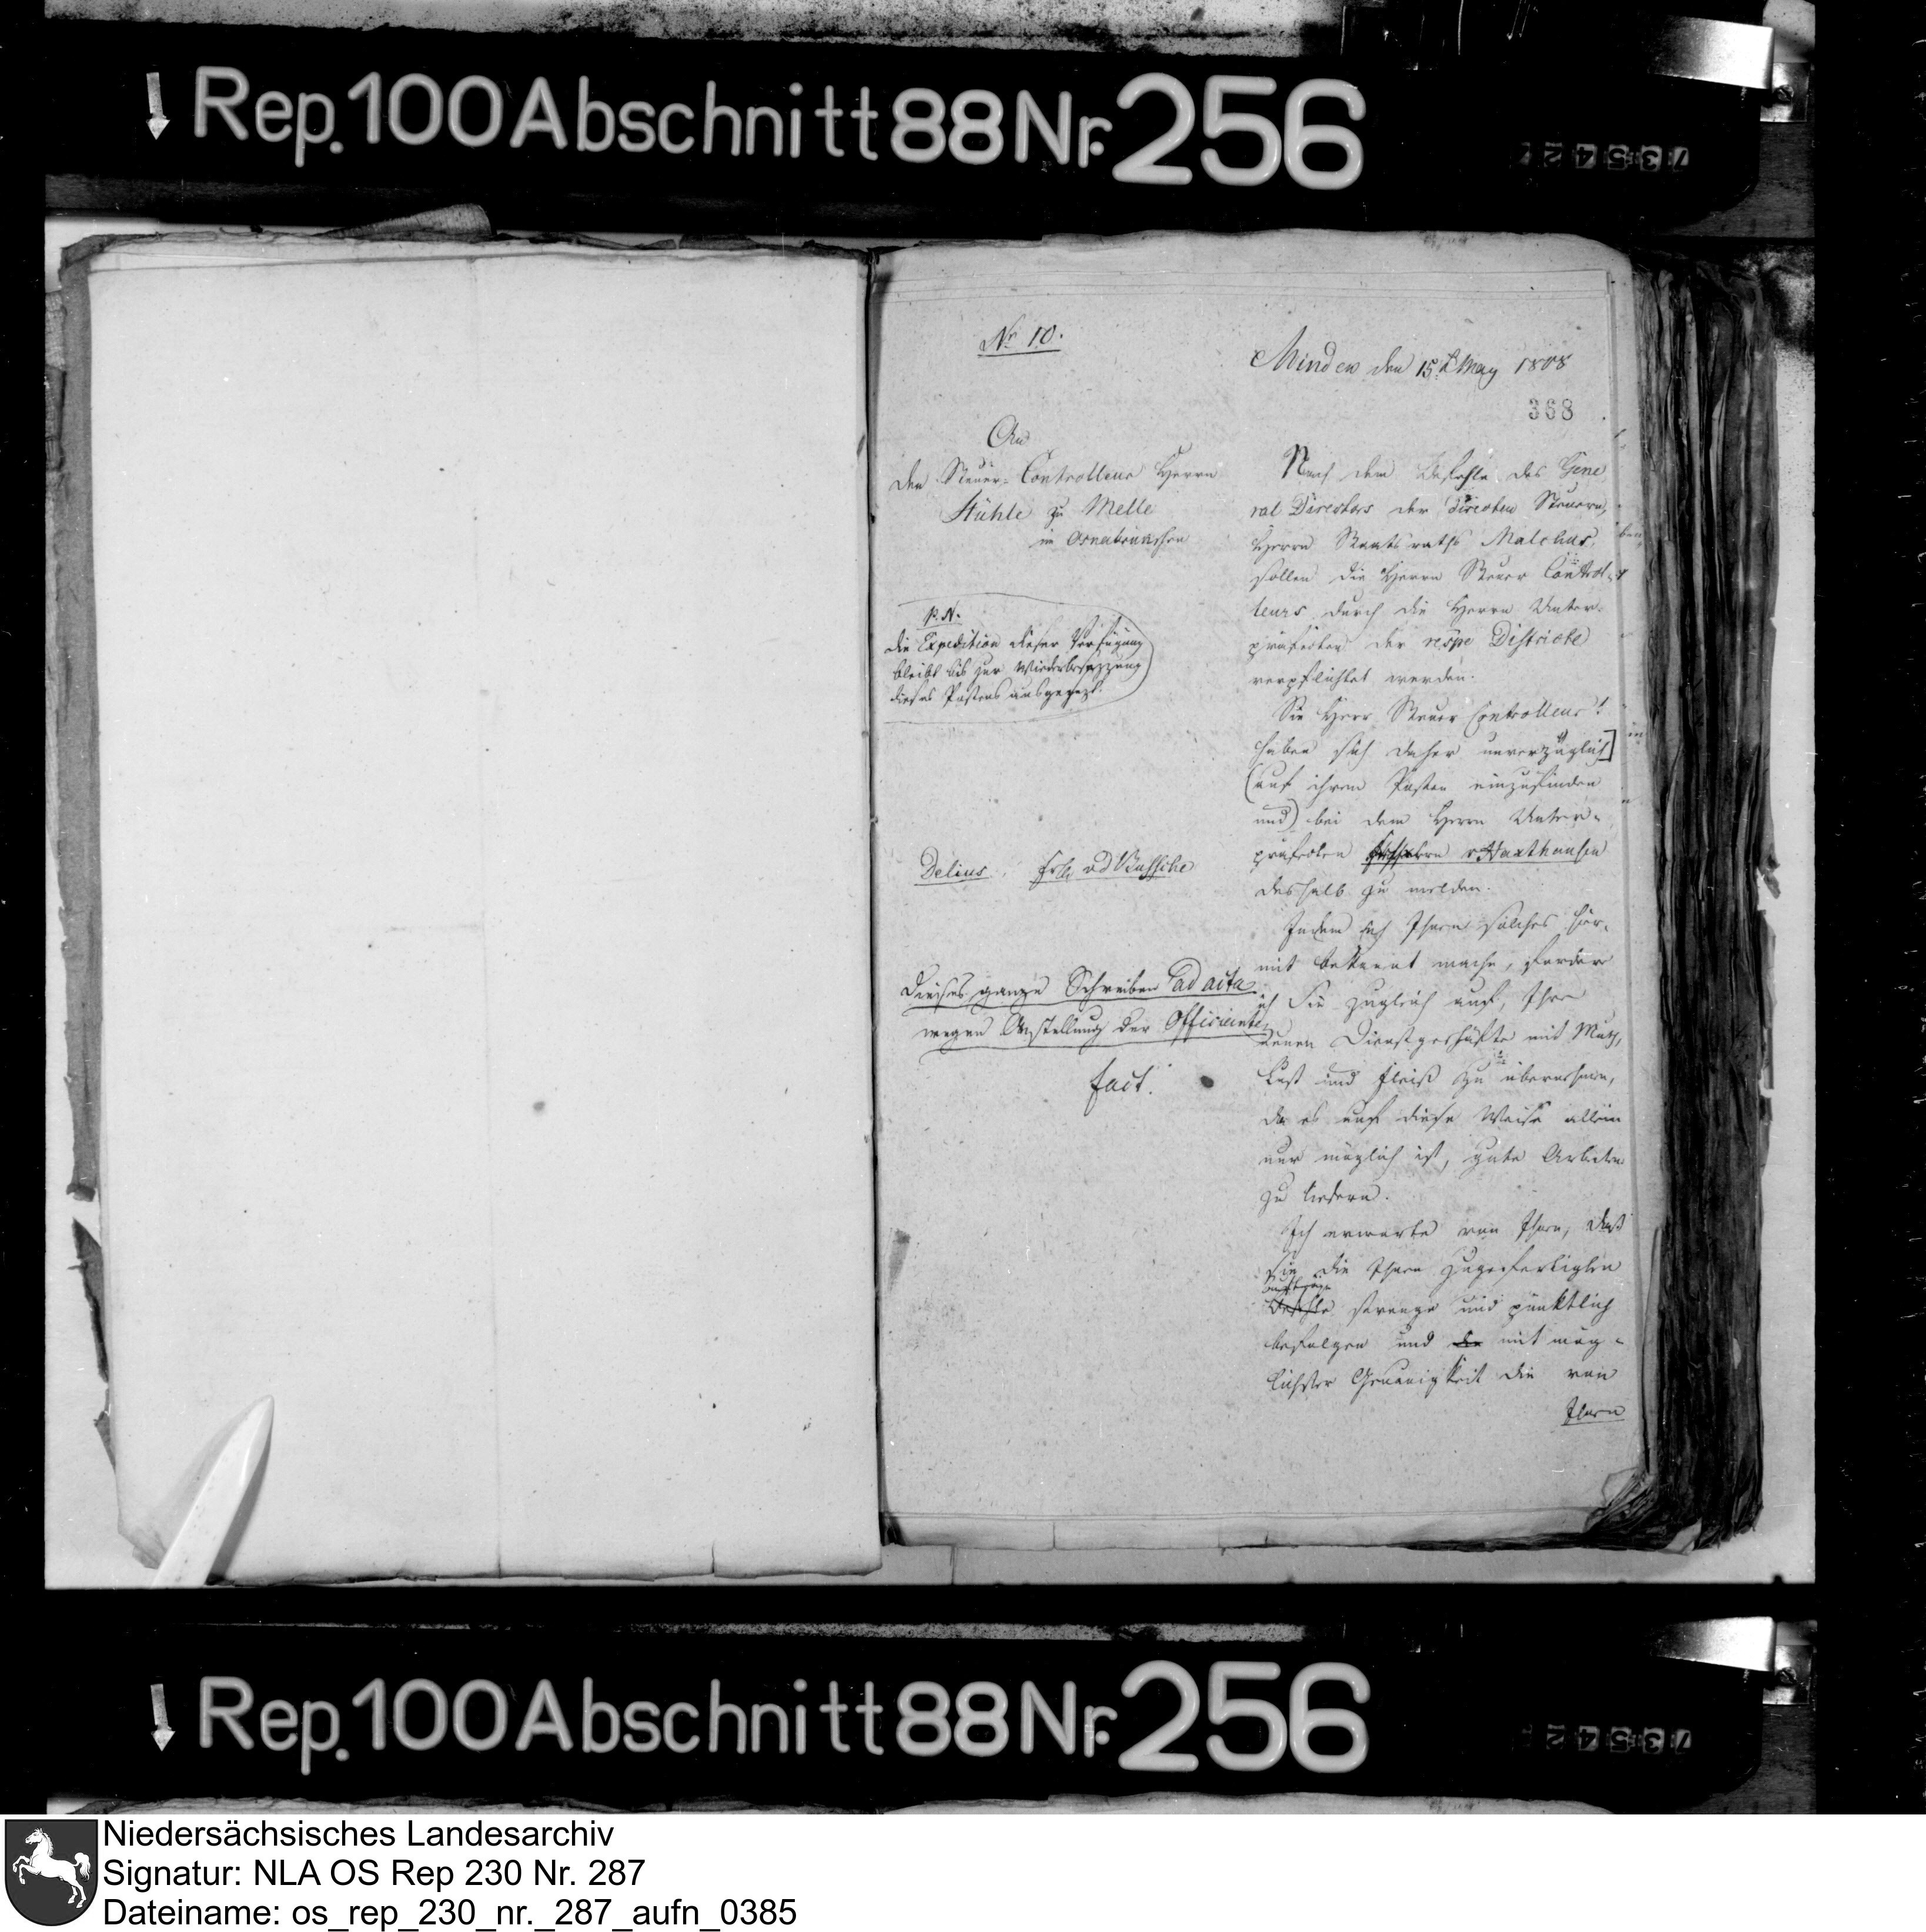 Rep. 100 Abschnitt 88 Nr. 256
735427
No 10.
Minden den 15t May 1808
368
An
den Steuer-Controlleur Herrn
Stühle zu Melle
im Osnabrückschen
P. N.
die Expedition dieser Verfügung
bleibt bis zur Wiederbesezzung
dieses Postens ausgesezt.
Delius. Frh. v d Bussche
Dieses ganze Schreiben ad acta
wegen Anstellung der Officianten
fact.
Nach dem Befehle des Gene
ral Directors der Directen Steuern,
Herrn Staatsraths Malchus,
sollen die Herrn Steuer Control-
leurs durch die Herrn Unter-
präfecten der respe Districte
verpflichtet werden.
Sie Herr Steuer Controlleur!
haben sich daher unverzüglich]
(auf ihrem Posten einzufinden
und) bei dem Herrn Unter-
präfecten v Haxthausen
deshalb zu melden.
Indem ich Ihnen solches hier-
mit bekannt mache, fordere
ich Sie zugleich auf, Ihre
neuen Dienstgeschäfte mit Muth,
Lust und Fleiß zu übernehmen,
da es auf diese Weise allein
nur möglich ist, gute Arbeiten
zu liefern.
Ich erwarte von Ihnen, daß
sie die Ihnen zugefertigten
Befehle strenge und pünktlich
befolgen und die mit mög-
lichster Genauigkeit die von
Ihnen
Rep. 100 Abschnitt 88 Nr. 256
735427
Niedersächsisches Landesarchiv
Signatur: NLA OS Rep 230 Nr. 287
Dateiname: os_rep_230_nr._287_aufn_0385